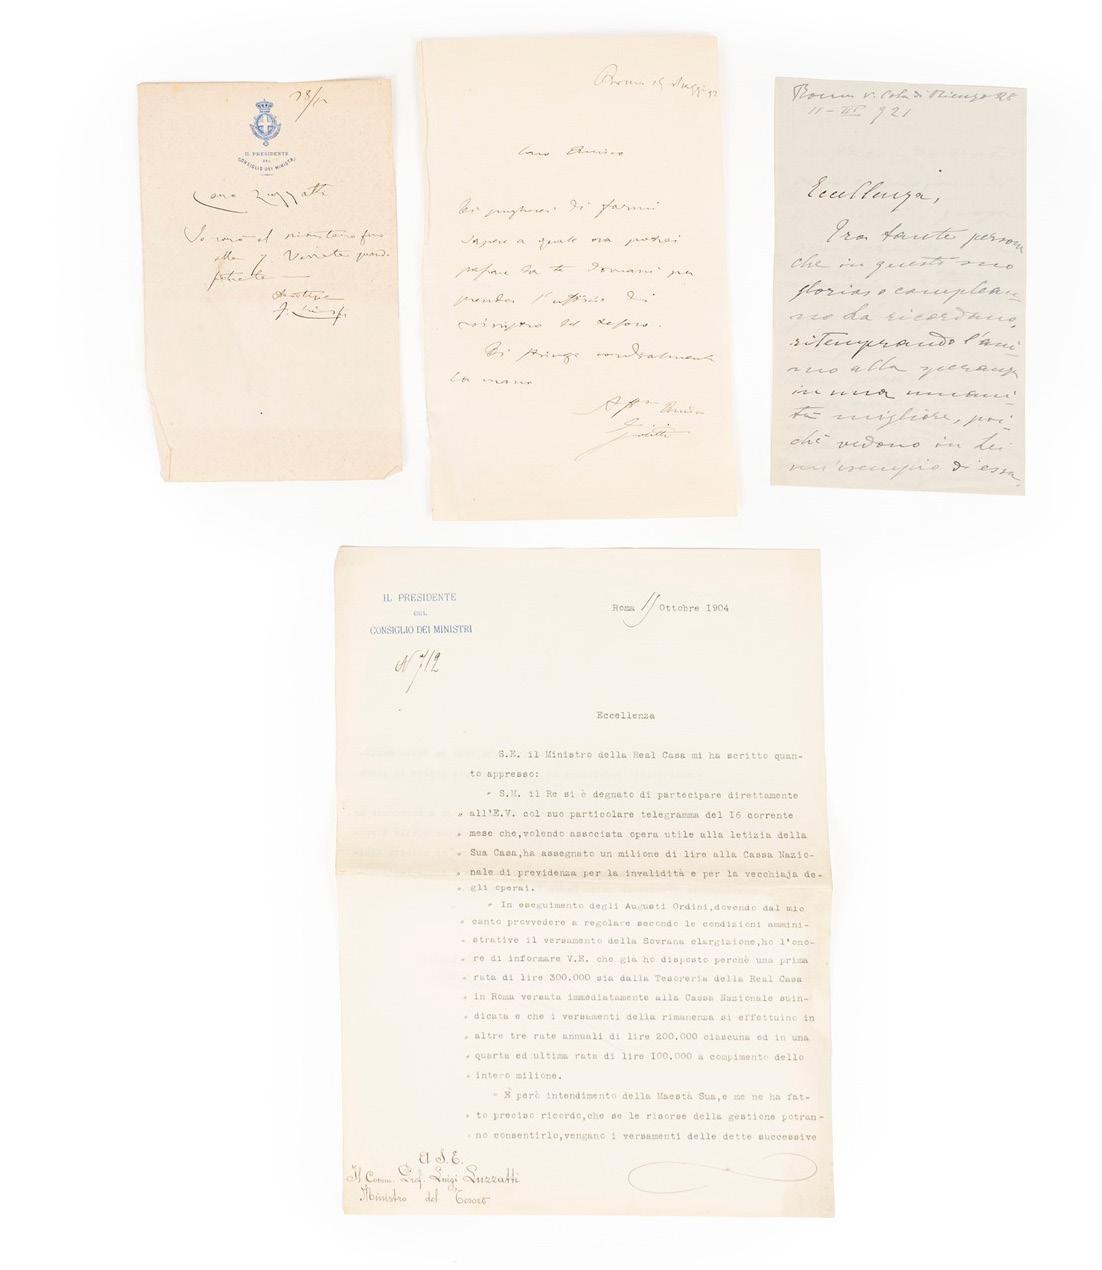 28/12
IL PRESIDENTE
DEL
CONSIGLIO DEI MINISTRI
Caro Luzzatti
Io sarò al ministero fino
alle 7 Venite quando
potrete
Crispi
Roma 15 Maggio 92
Caro Amico
Ti pregherei di farmi
sapere a quale ora potrei
passare da te domani per
prender l'ufficio di
ministro del tesoro.
Ti stringo cordialmente
la mano
Aff.mo Amico
Giolitti
Roma v. Cola di Rienzo 28
11-III 921
Eccellenza,
Tra tante persone
che in questo suo
glorioso complean-
no La ricordano,
ritemprando l'ani-
mo alla speranza
in una umani-
tà migliore, poi-
chè vedono in Lei
un'esempio di essa,
IL PRESIDENTE
DEL
CONSIGLIO DEI MINISTRI
Roma Ottobre 1904
N 712
Eccellenza
S.E. il Ministro della Real Casa mi ha scritto quan-
to appresso:
" S.M. il Re si è degnato di partecipare direttamente
" all'E.V. col suo particolare telegramma del I6 corrente
" mese che,volendo associata opera utile alla letizia della
" Sua Casa,ha assegnato un milione di lire alla Cassa Nazio-
" nale di previdenza per la invalidità e per la vecchiaja de-
" gli operai.
" In eseguimento degli Augusti Ordini,dovendo dal mio
" canto provvedere a regolare secondo le condizioni ammini-
" strative il versamento della Sovrana elargizione,ho l'ono-
" re di informare V.E. che già ho disposto perchè una prima
" rata di lire 300.000 sia dalla Tesoreria della Real Casa
" in Roma versata immediatamente alla Cassa Nazionale suin-
" dicata e che i versamenti della rimanenza si effettuino in
" altre tre rate annuali di lire 200.000 ciascuna ed in una
" quarta ed ultima rata di lire I00.000 a compimento dello
" intero milione.
" È però intendimento della Maestà Sua,e me ne ha fat-
" to preciso ricordo,che se le risorse della gestione potran-
" no consentirlo,vengano i versamenti delle dette successive
A S.E.
Il Comm. Prof. Luigi Luzzatti
Ministro del Tesoro